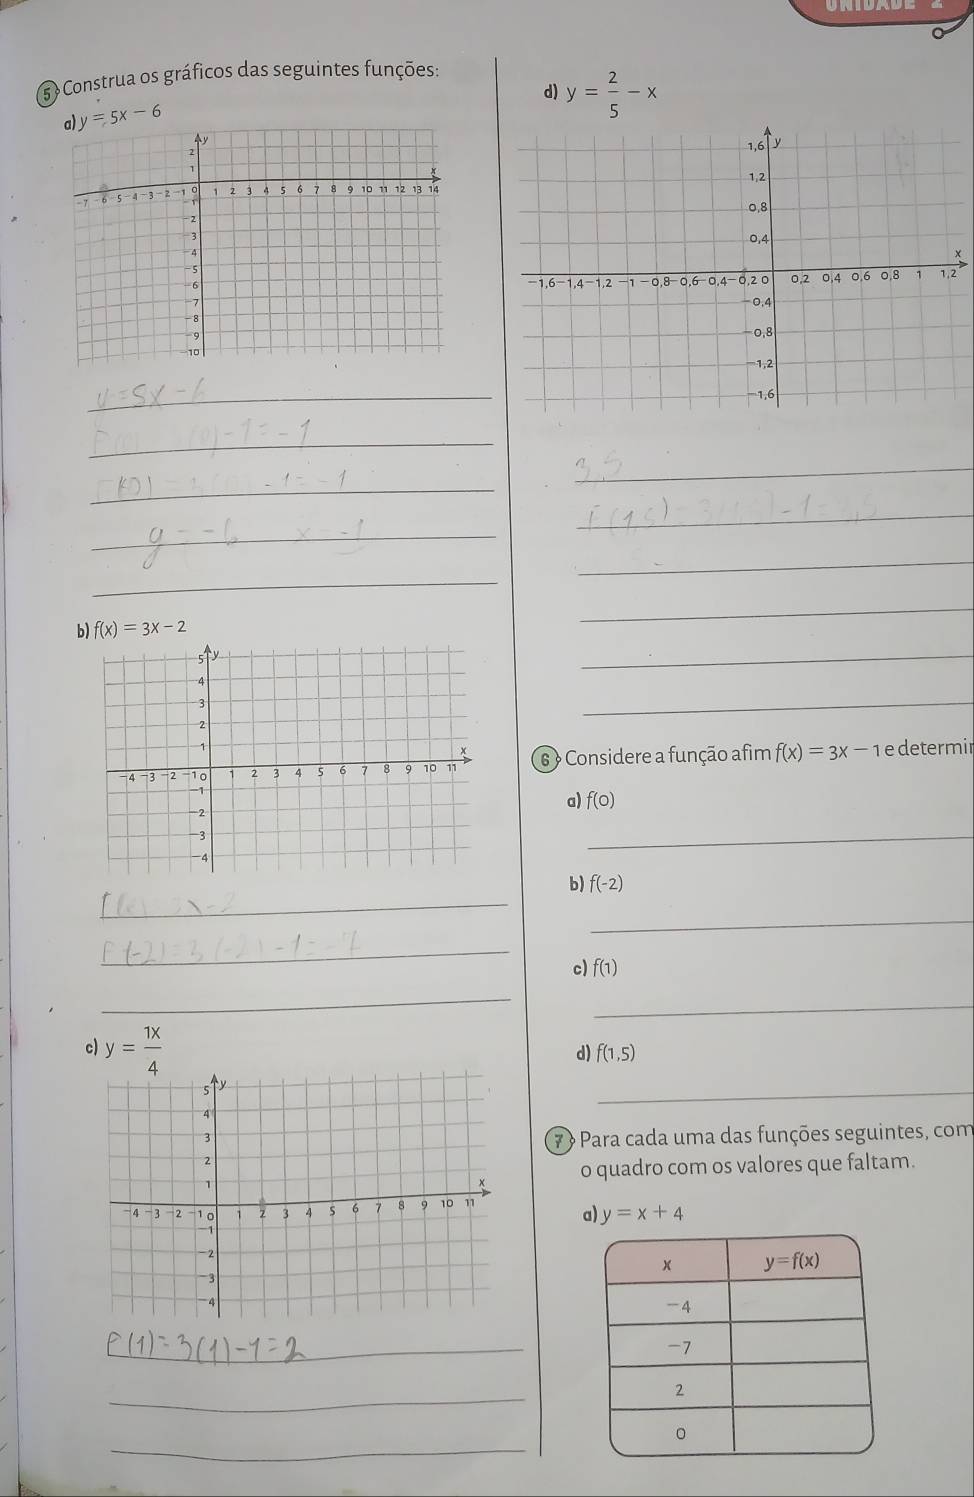 UNIDADE 2
5 Construa os gráficos das seguintes funções:
a) y = 5x − 6
y
2
1
x
−7 −6 −5 −4 −3 −2 −1 0 1 2 3 4 5 6 7 8 9 10 11 12 13 14
−1
−2
−3
−4
−5
−6
−7
−8
−9
−10
y = 5x − 6
F(0) (0) − 1 = − 1
F(0) = 3(0) − 1 = − 1
y = − 6 x = − 1
b) f(x) = 3x − 2
y
5
4
3
2
1
x
−4 −3 −2 −1 0 1 2 3 4 5 6 7 8 9 10 11
−1
−2
−3
−4
f(x) = 3x − 2
F(−2) = 3(−2) − 1 = −7
c) y = 1x/4
y
5
4
3
2
1
x
−4 −3 −2 −1 0 1 2 3 4 5 6 7 8 9 10 11
−1
−2
−3
−4
F(1) = 3(1) − 1 = 2
d) y = 2/5 − x
y
1,6
1,2
0,8
0,4
x
−1,6 −1,4 −1,2 −1 −0,8 −0,6 −0,4 −0,2 0 0,2 0,4 0,6 0,8 1 1,2
−0,4
−0,8
−1,2
−1,6
3,5
F(1,5) = 3(1,5) − 1 = 3,5
6 Considere a função afim f(x) = 3x − 1 e determin
a) f(0)
b) f(-2)
c) f(1)
d) f(1,5)
7 Para cada uma das funções seguintes, com
o quadro com os valores que faltam.
a) y = x + 4
x y=f(x)
−4
−7
2
0